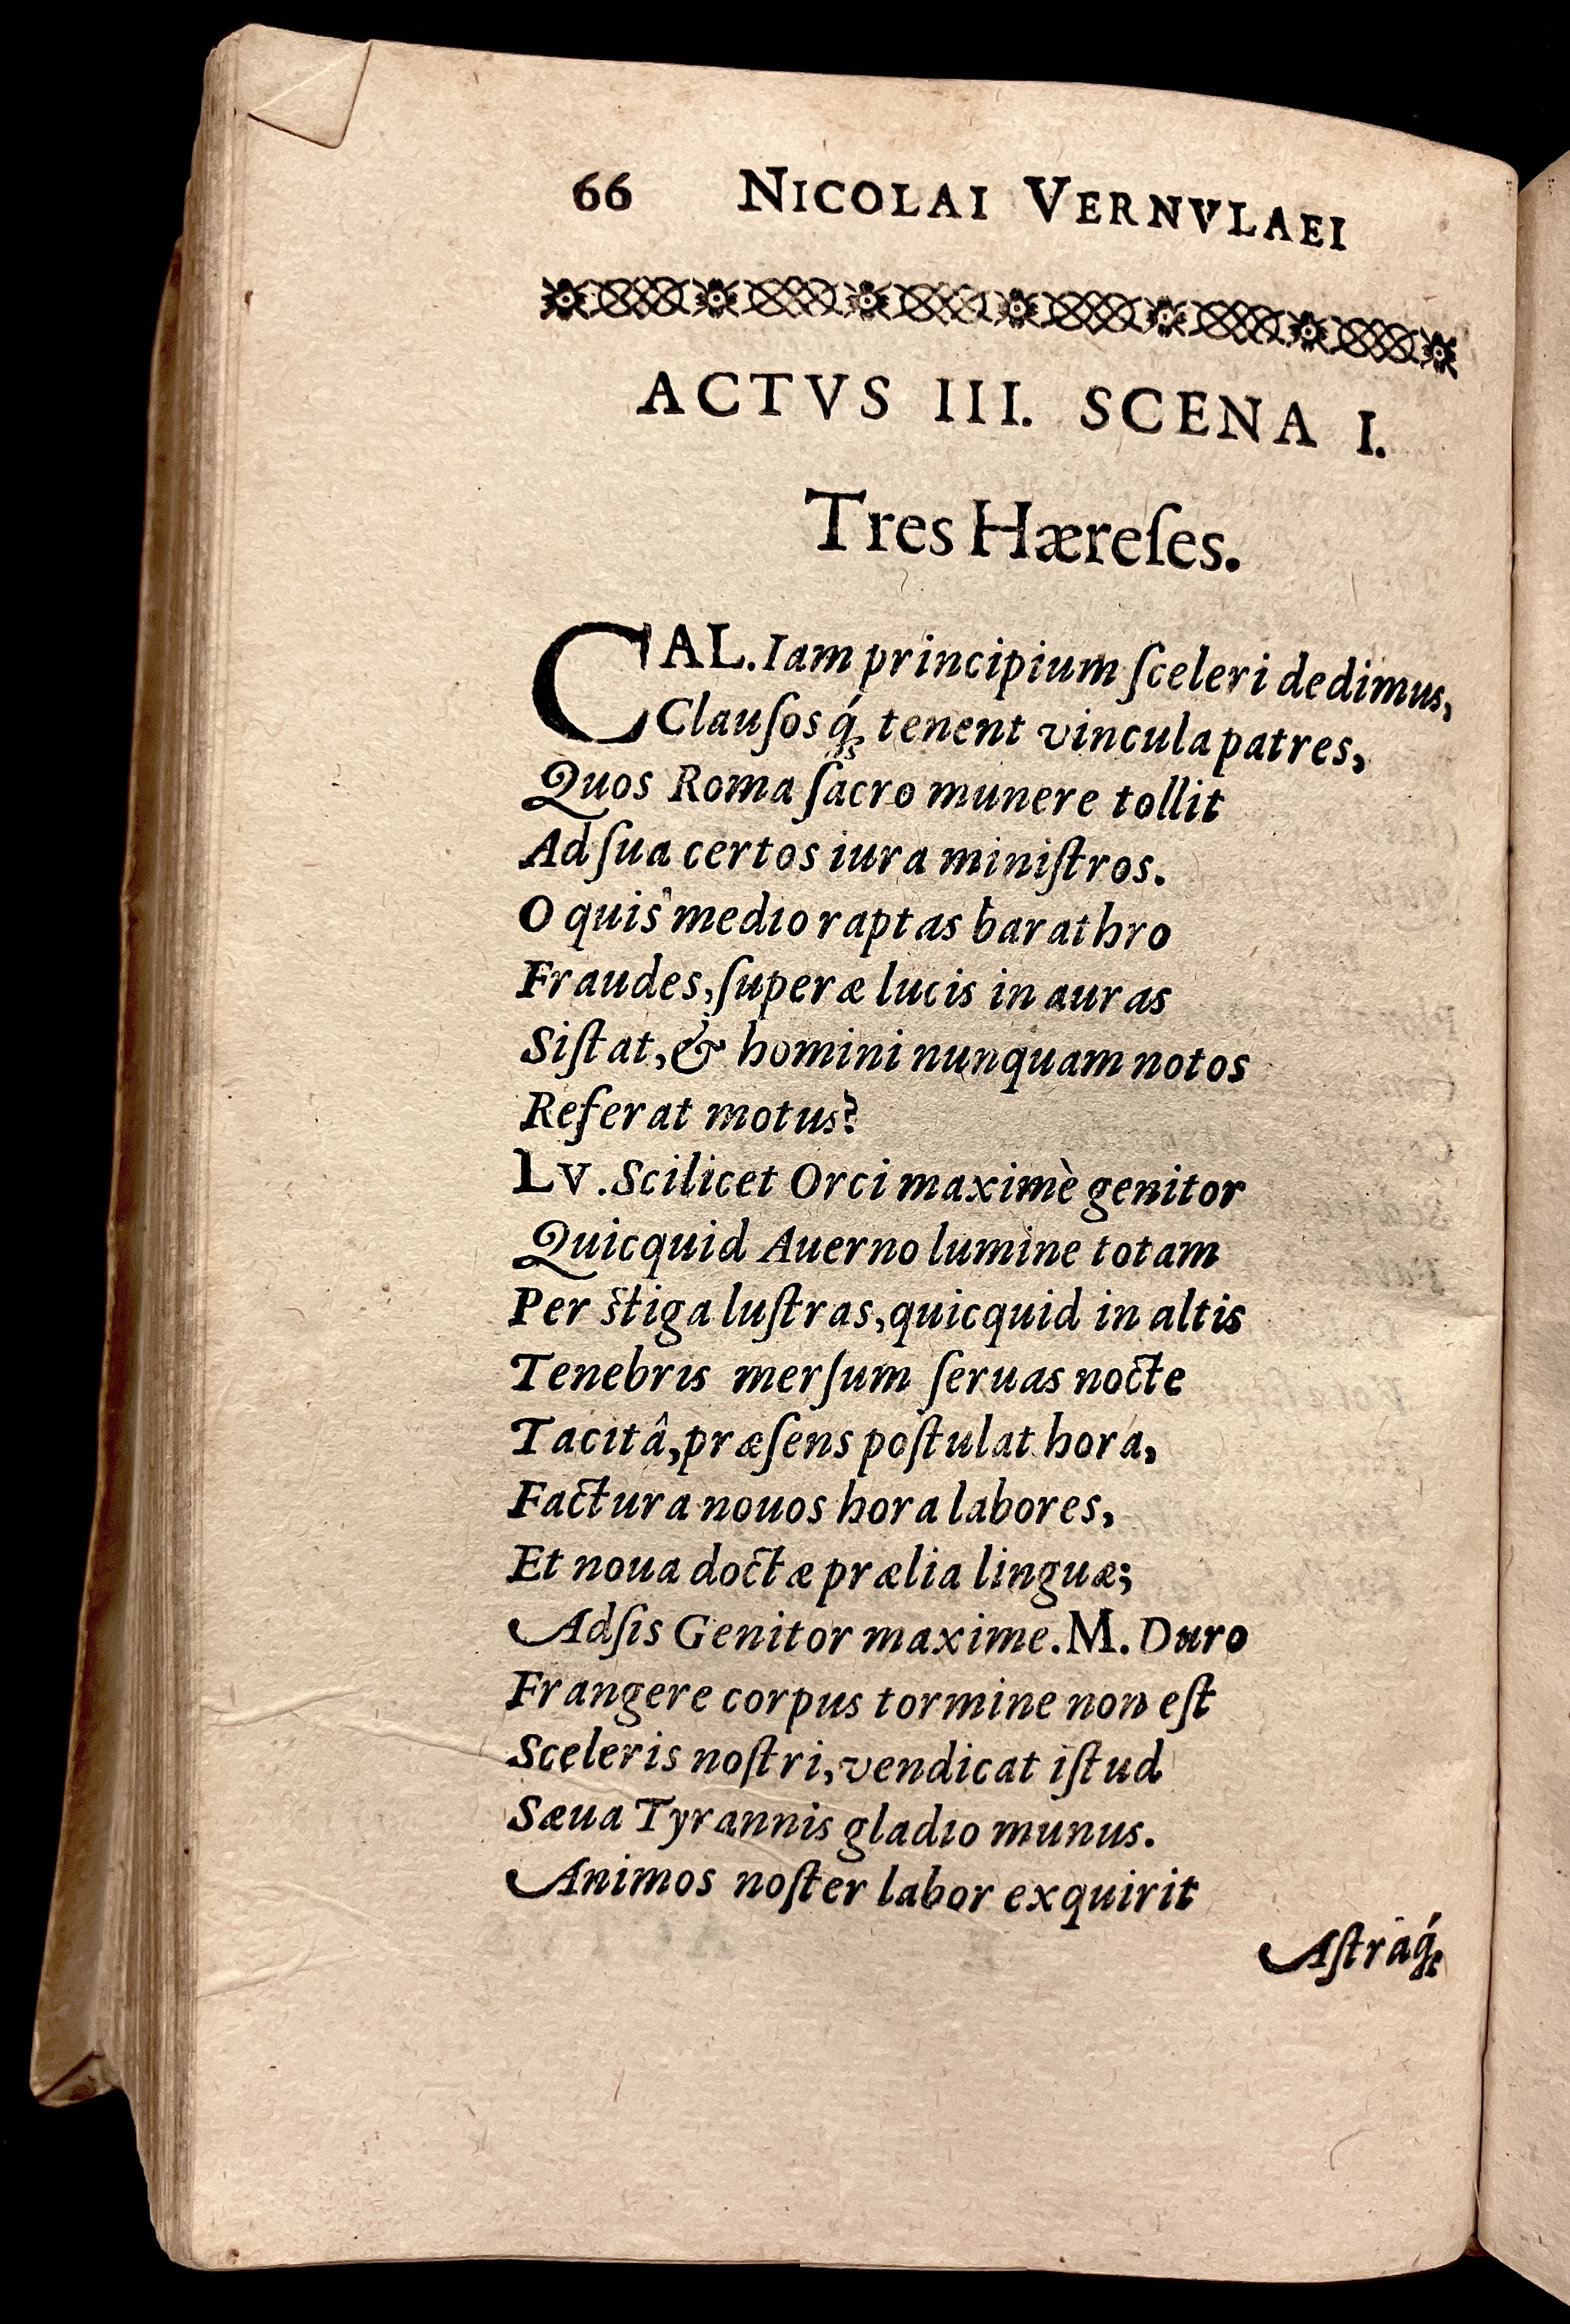 66 NICOLAI VERNVLAEI
ACTVS III. SCENA I.
Tres Hæreſes.
CAL. Iam principium ſceleri dedimus,
Clauſosq́; tenent vincula patres,
Quos Roma ſacro munere tollit
Ad ſua certos iura miniſtros.
O quis medio raptas barathro
Fraudes, ſuperæ lucis in auras
Siſtat, & homini nunquam notos
Referat motus?
LV. Scilicet Orci maximè genitor
Quicquid Auerno lumine totam
Per ſtiga luſtras, quicquid in altis
Tenebris merſum ſeruas nocte
Tacitâ, præſens poſtulat hora,
Factura nouos hora labores,
Et noua doctæ prælia linguæ;
Adſis Genitor maxime. M. Duro
Frangere corpus tormine non eſt
Sceleris noſtri, vendicat iſtud
Sæua Tyrannis gladio munus.
Animos noſter labor exquirit
Aſtraq́;